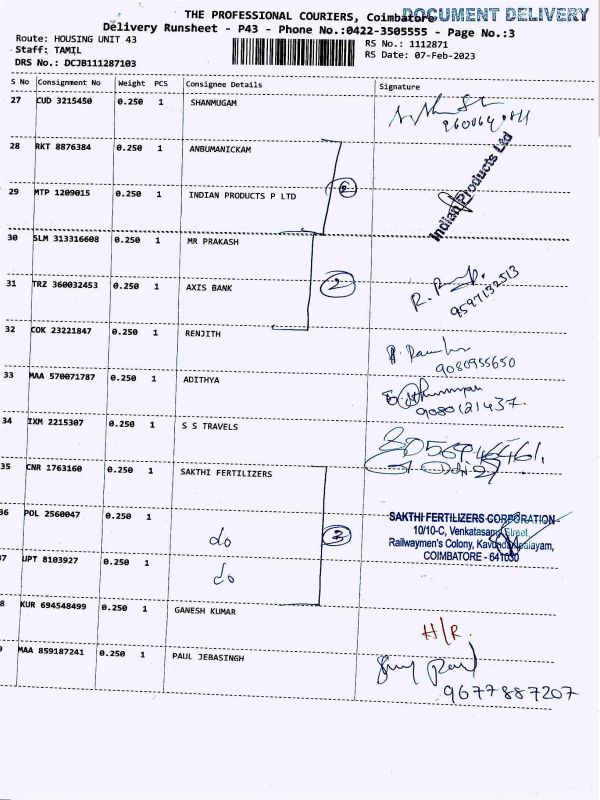 DOCUMENT DELIVERY
THE PROFESSIONAL COURIERS, Coimbatore
Delivery Runsheet - P43 - Phone No.:0422-3505555 - Page No.:3
Route: HOUSING UNIT 43
Staff: TAMIL
DRS No.: DCJB111287103
RS No.: 1112871
RS Date: 07-Feb-2023
S No Consignment No Weight PCS Consignee Details Signature
27 CUD 3215450 0.250 1 SHANMUGAM
28 RKT 8876384 0.250 1 ANBUMANICKAM
29 MTP 1209015 0.250 1 INDIAN PRODUCTS P LTD
Indian Products Ltd
30 SLM 313316608 0.250 1 MR PRAKASH
2
31 TRZ 360032453 0.250 1 AXIS BANK
9597132513
32 COK 23221847 0.250 1 RENJITH
9080955650
33 MAA 570071787 0.250 1 ADITHYA
9080121437.
34 IXM 2215307 0.250 1 S S TRAVELS
35 CNR 1763160 0.250 1 SAKTHI FERTILIZERS
36 POL 2560047 0.250 1 do
3
SAKTHI FERTILIZERS CORPORATION
10/10-C, Venkatasamy Street,
Railwaymen's Colony, Kavundampalayam,
COIMBATORE - 641030
7 UPT 8103927 0.250 1 do
8 KUR 694548499 0.250 1 GANESH KUMAR H/R.
9 MAA 859187241 0.250 1 PAUL JEBASINGH
9677887207